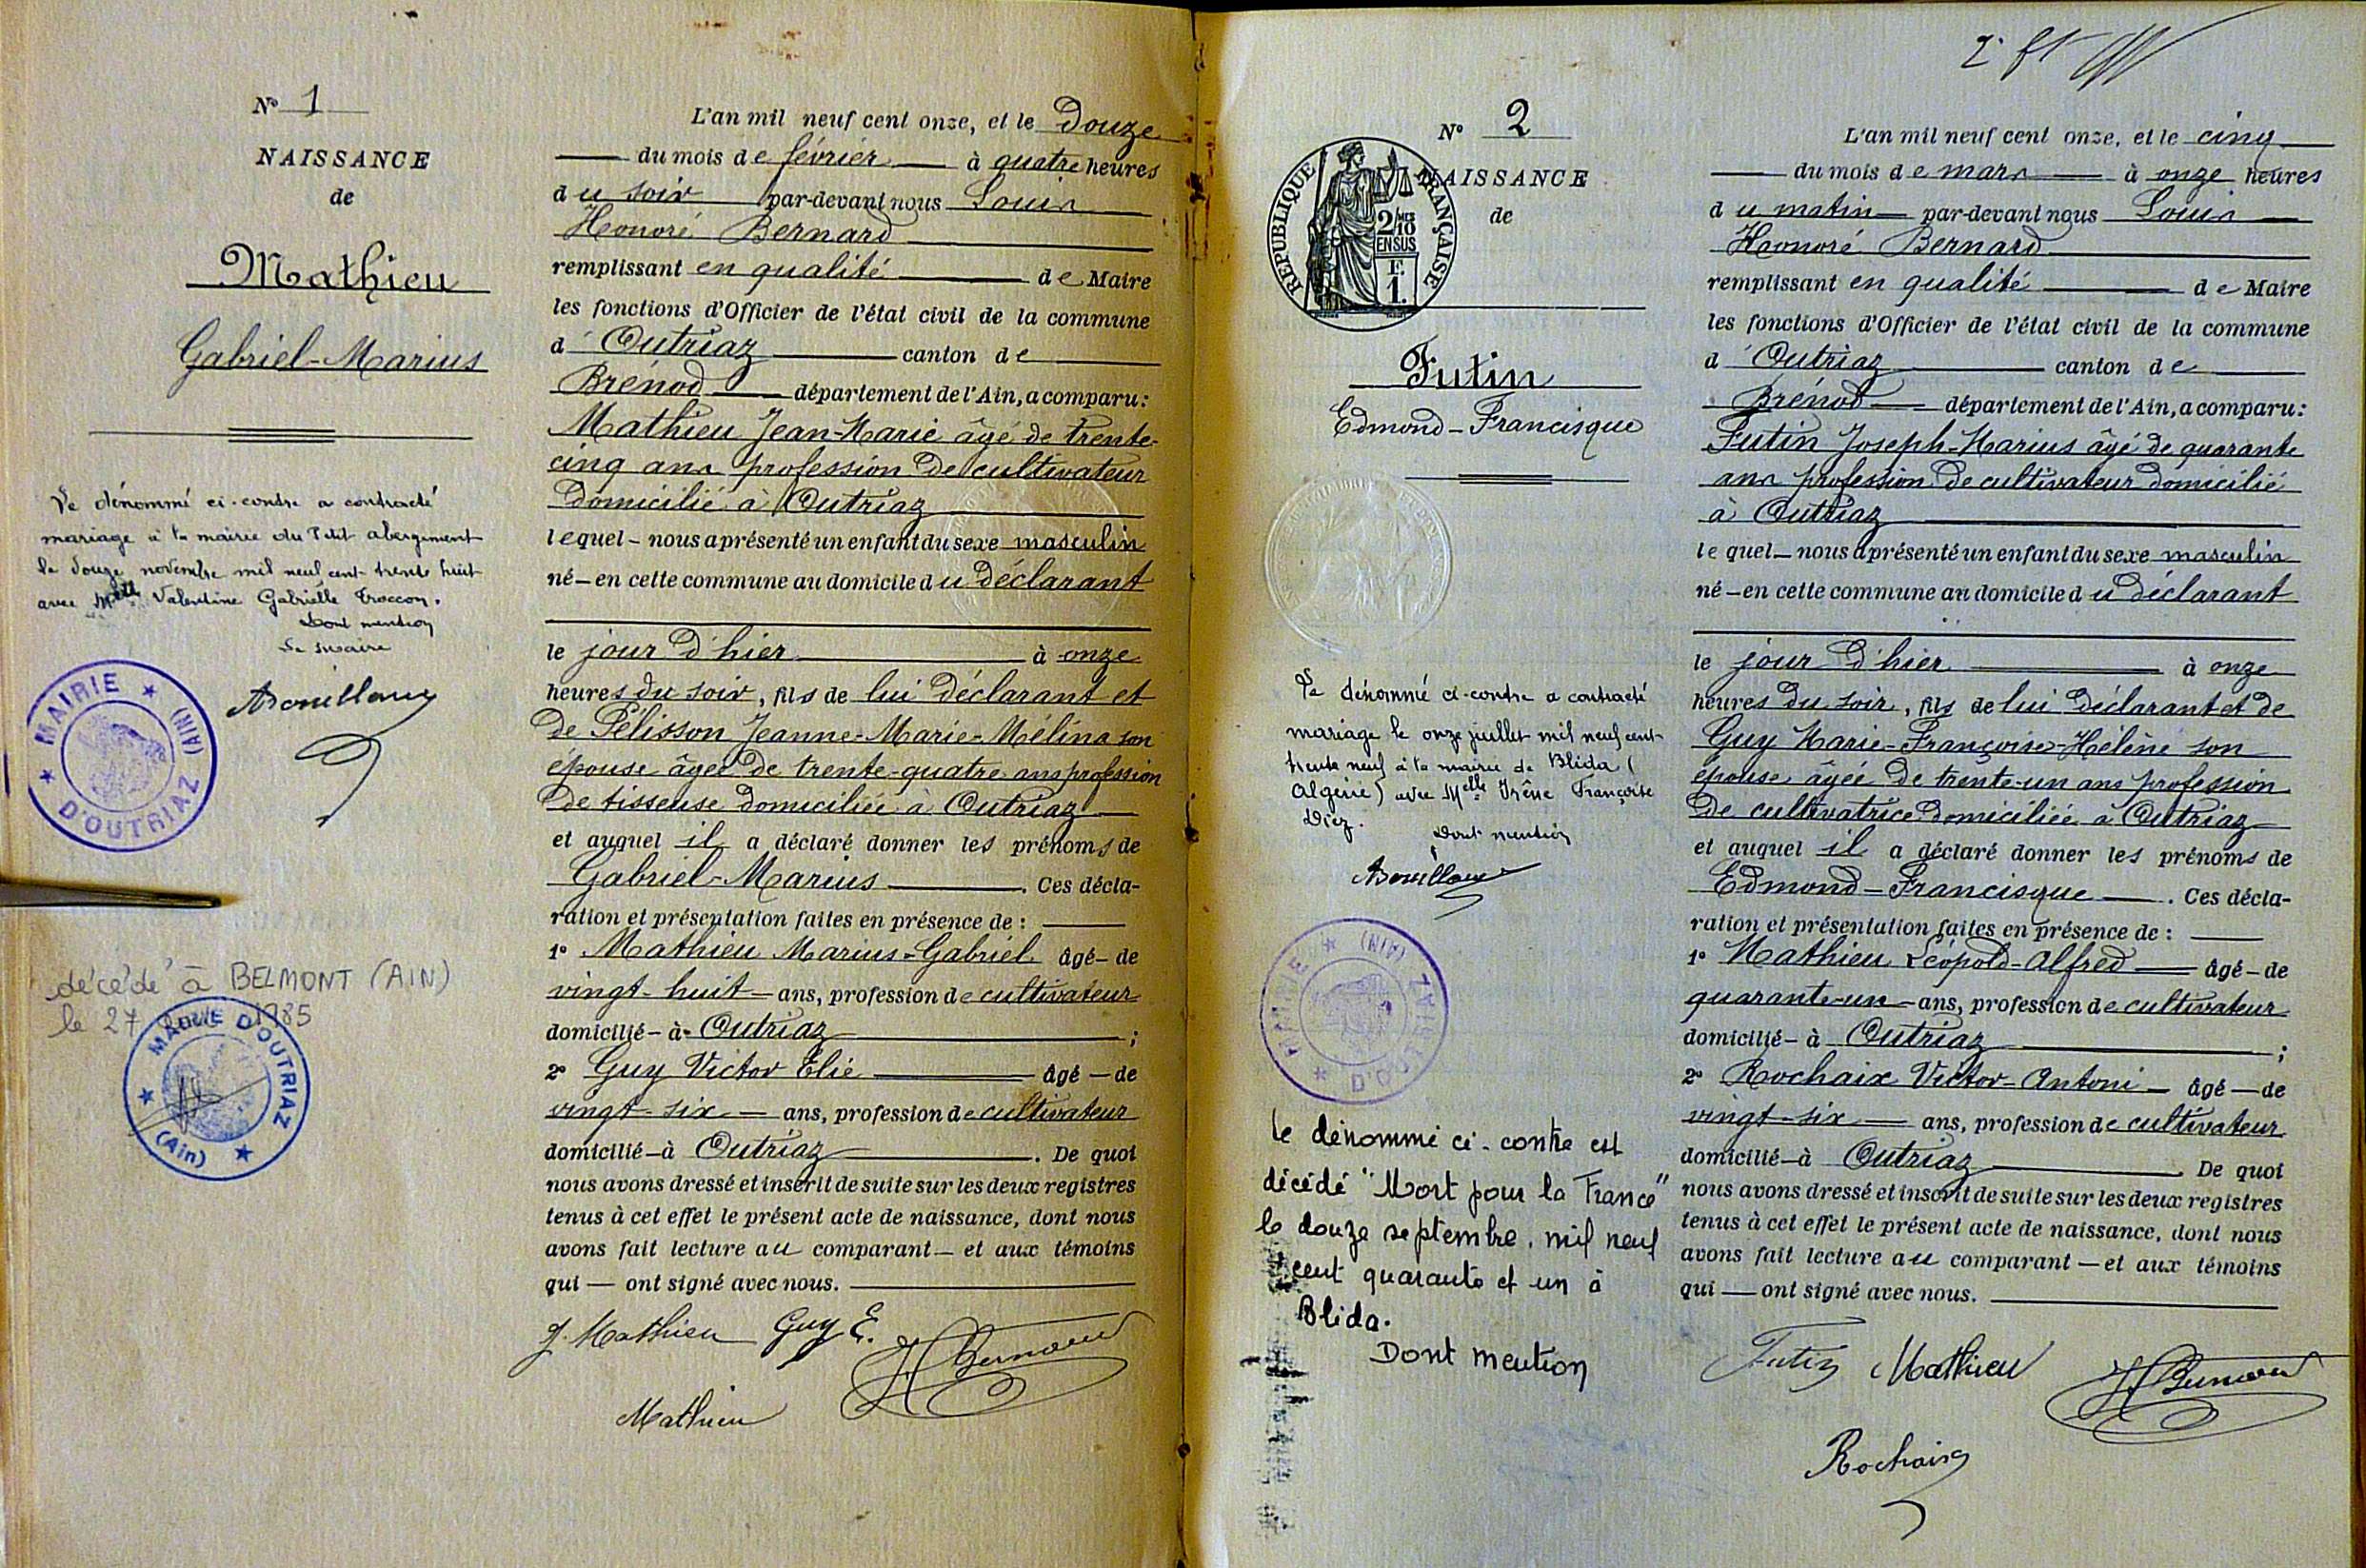 N° 1
NAISSANCE
de
Mathieu
Gabriel-Marius
Le dénommé ci-contre a contracté
mariage à la mairie du Petit abergement
le douze novembre mil neuf cent trente huit
avec Melle Valentine Gabrielle Troccon.
Dont mention
Le maire
MAIRIE D'OUTRIAZ (AIN)
décédé à BELMONT (AIN)
le 27 1985
MAIRIE D'OUTRIAZ (Ain)
L'an mil neuf cent onze, et le Douze
du mois de février à quatre heures
du soir par-devant nous Louis
Honoré Bernard
remplissant en qualité de Maire
les fonctions d'Officier de l'état civil de la commune
d'Outriaz canton de
Brénod département de l'Ain, a comparu:
Mathieu Jean-Marie âgé de trente-
cinq ans profession de cultivateur
domicilié à Outriaz
lequel nous a présenté un enfant du sexe masculin
né en cette commune au domicile du déclarant
le jour d'hier à onze
heures du soir, fils de lui déclarant et
de Pélisson Jeanne-Marie-Mélina son
épouse âgée de trente-quatre ans profession
de tisseuse domiciliée à Outriaz
et auquel il a déclaré donner les prénoms de
Gabriel-Marius. Ces décla-
ration et présentation faites en présence de :
1° Mathieu Marius-Gabriel âgé de
vingt-huit ans, profession de cultivateur
domicilié à Outriaz ;
2° Guy Victor Elie âgé de
vingt-six ans, profession de cultivateur
domicilié à Outriaz. De quoi
nous avons dressé et inscrit de suite sur les deux registres
tenus à cet effet le présent acte de naissance, dont nous
avons fait lecture au comparant et aux témoins
qui ont signé avec nous.
J. Mathieu Guy E. H Bernard
Mathieu
N° 2
NAISSANCE
de
REPUBLIQUE FRANÇAISE
2/10 EN SUS
F. 1.
Futin
Edmond-Francisque
Le dénommé ci-contre a contracté
mariage le onze juillet mil neuf cent
trente neuf à la mairie de Blida (
Algérie) avec Melle Irène Françoise
Diez.
Dont mention
MAIRIE D'OUTRIAZ (AIN)
Le dénommé ci-contre est
décédé "Mort pour la France"
le douze septembre mil neuf
cent quarante et un à
Blida.
Dont mention
L'an mil neuf cent onze, et le cinq
du mois de mars à onze heures
du matin par-devant nous Louis
Honoré Bernard
remplissant en qualité de Maire
les fonctions d'Officier de l'état civil de la commune
d'Outriaz canton de
Brénod département de l'Ain, a comparu:
Futin Joseph-Marius âgé de quarante
ans profession de cultivateur domicilié
à Outriaz
lequel nous a présenté un enfant du sexe masculin
né en cette commune au domicile du déclarant
le jour d'hier à onze
heures du soir, fils de lui déclarant et de
Guy Marie-Françoise-Hélène son
épouse âgée de trente-un ans profession
de cultivatrice domiciliée à Outriaz
et auquel il a déclaré donner les prénoms de
Edmond-Francisque. Ces décla-
ration et présentation faites en présence de :
1° Mathieu Léopold-Alfred âgé de
quarante-un ans, profession de cultivateur
domicilié à Outriaz ;
2° Rochaix Victor-Antoni âgé de
vingt-six ans, profession de cultivateur
domicilié à Outriaz De quoi
nous avons dressé et inscrit de suite sur les deux registres
tenus à cet effet le présent acte de naissance, dont nous
avons fait lecture au comparant et aux témoins
qui ont signé avec nous.
Futin Mathieu H Bernard
Rochaix